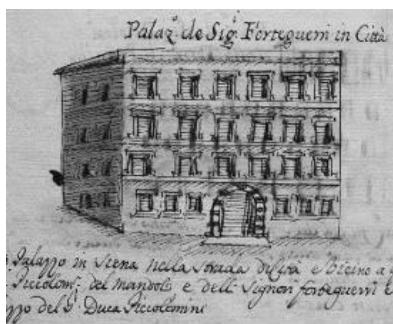 Palaz.º de Sig.ri Forteguerri in Città
Palazzo in Siena nella strada di Città e vicino a
Piccolom: del mandolo e dell. Signori forteguerri e
zzo del S. Duca Piccolomini